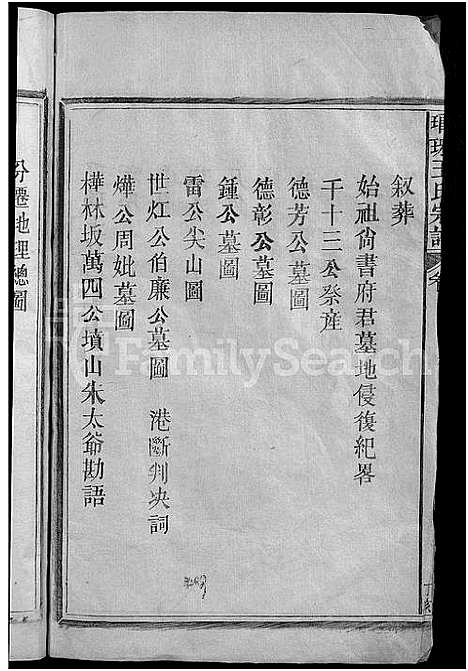 瑯琊王氏宗譜 卷
叙葬
始祖尙書府君墓地侵復紀畧
千十三公祭産
德芳公墓圖
德彰公墓圖
鍾公墓圖
雷公尖山圖
世灴公伯廉公墓圖 港斷判决詞
燁公周妣墓圖
樺林坂萬四公墳山朱太爺勘語
分遷地理總圖
FamilySearch